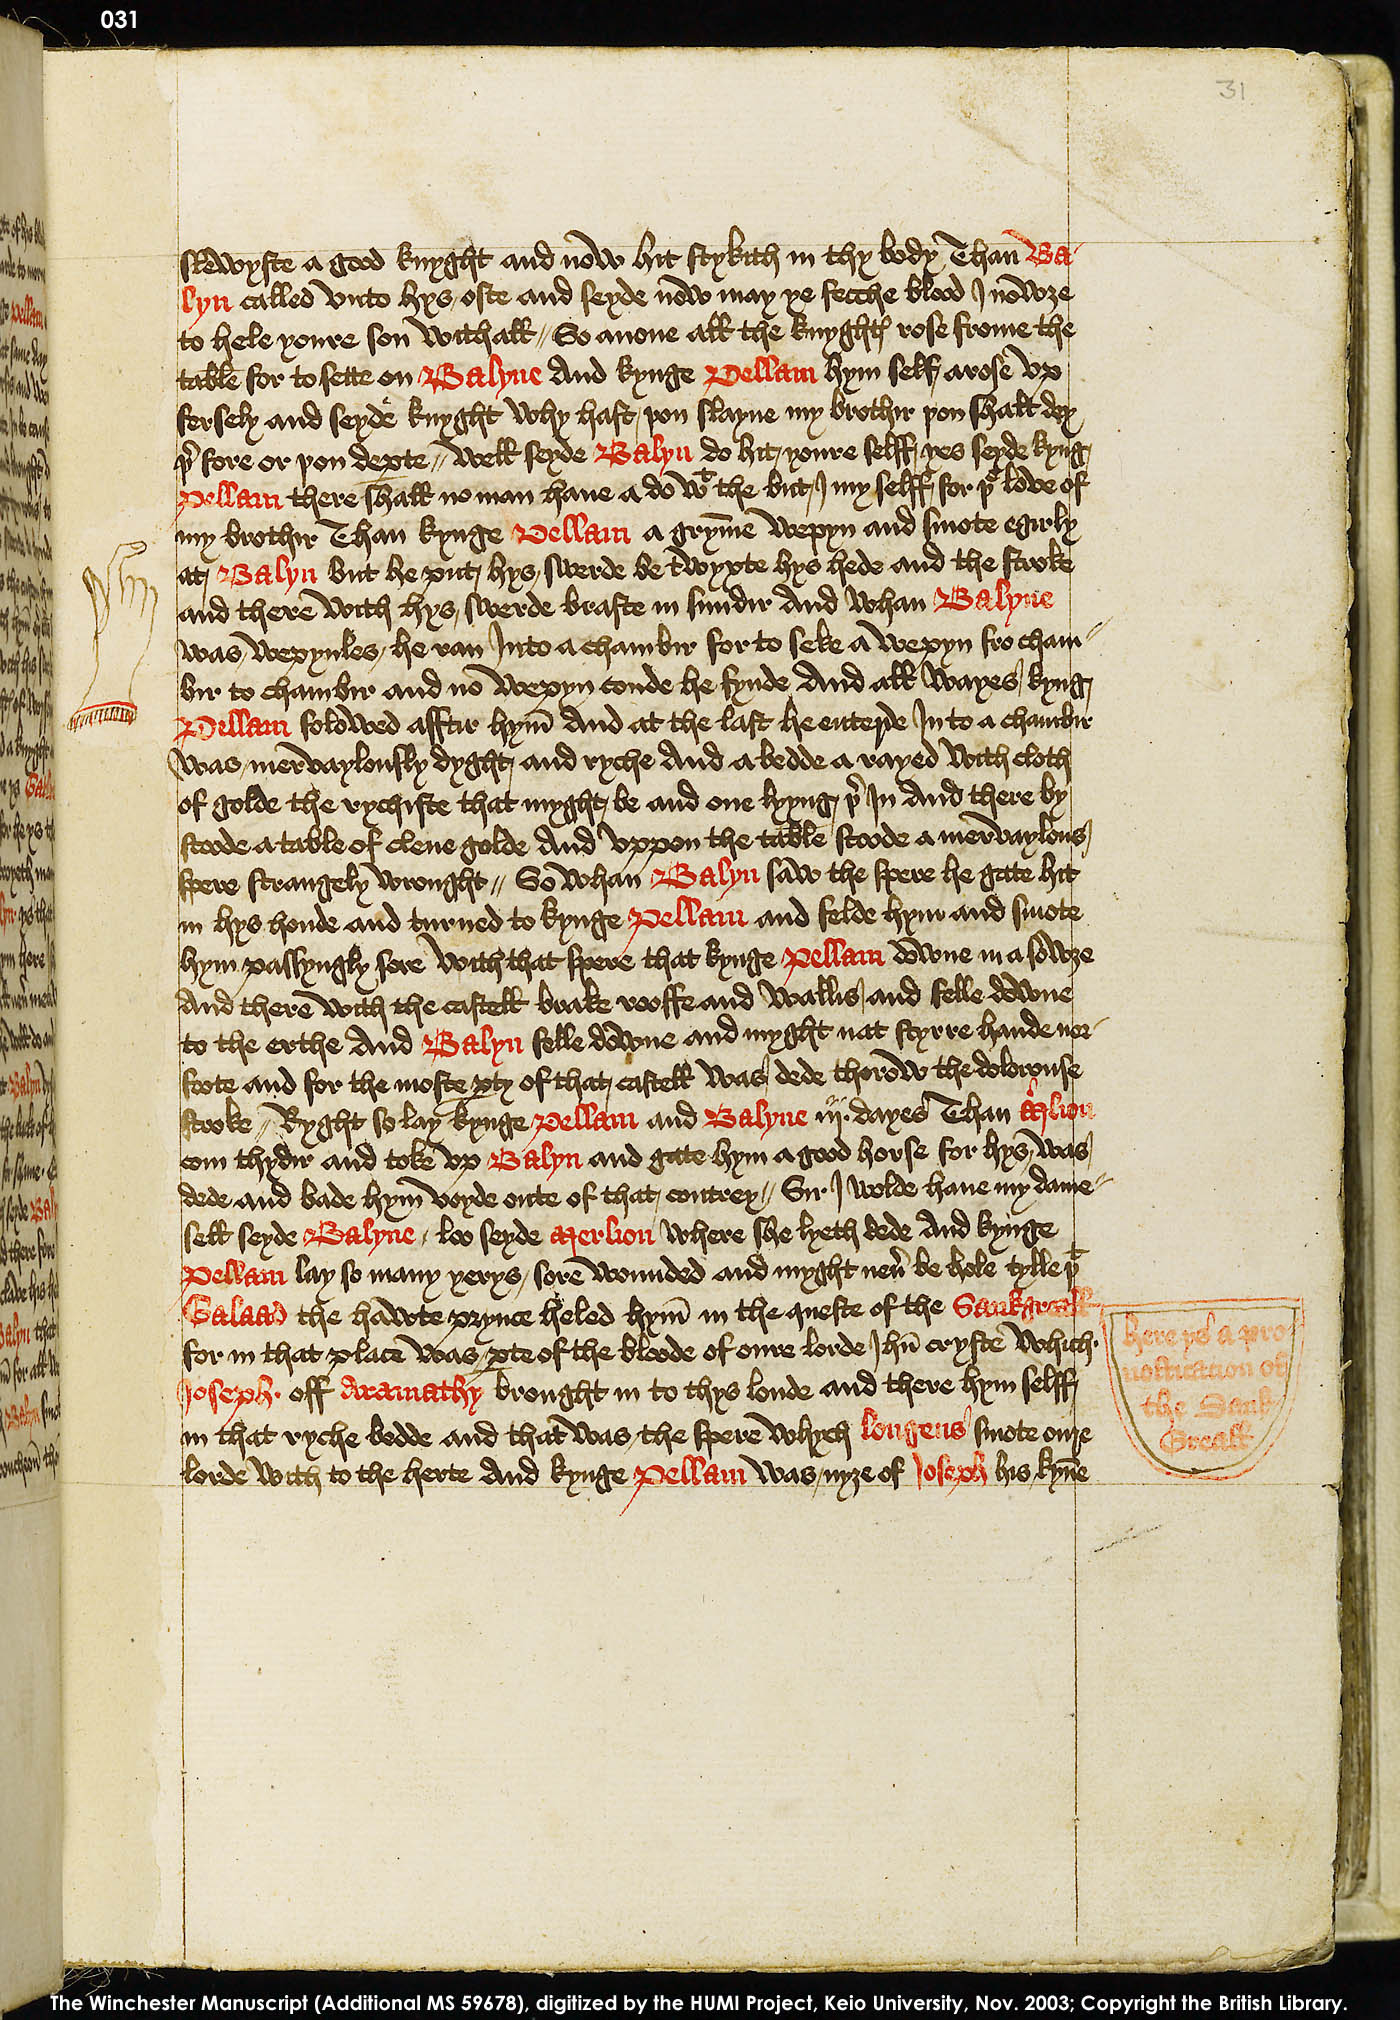 031
31
slewyste a good knyght and now hit stykith in thy body Than Ba-
lyn called vnto hys oste and seyde now may ye fecche blood I nowȝe
to hele youre son withall // So anone all the knyghtes rose frome the
table for to sette on Balyne And kynge Pellam hym self arose vp
fersely and seyde knyght why hast þou slayne my brothir þou shalt dey
þerfore or þou departe // Well seyde Balyn do hit youre selff yes seyde kyng
Pellam there shall no man haue a do wt the but I my selff for þe love of
my brothir Than kynge Pellam a gryme wepyn and smote egirly
at Balyn but he put hys swerde be twyxte hys hede and the stroke
and there with hys swerde braste in sundir And whan Balyne
was wepynles he ran Into a chambir for to seke a wepyn fro cham-
bir to chambir and no wepyn coude he fynde And all wayes kyng
Pellam folowed afftir hym And at the last he enterde In to a chambir
was mervaylously dyght and ryche And a bedde a rayed with cloth
of golde the rychiste that myght be and one lyyng þer In And there by
stoode a table of clene golde And vppon the table stoode a mervaylous
spere strangely wrought // So whan Balyn saw the spere he gate hit
in hys honde and turned to kynge Pellam and felde hym and smote
hym passyngly sore with that spere that kynge Pellam downe in a sowȝe
And there with the castell brake rooffe and wallis and felle downe
to the erthe And Balyn felle downe and myght nat styrre hande nor
foote and for the moste pty of that castell was dede thorow the dolorouse
stroke // Ryght so lay kynge Pellam and Balyne iij. dayes Than Merlion
com thydir and toke vp Balyn and gate hym a good horse for hys was
dede and bade hym voyde oute of that contrey // Sir I wolde haue my dame-
sell seyde Balyne / loo seyde Merlion where she lyeth dede And kynge
Pellam lay so many yerys sore wounded and myght neuer be hole tylle þt
Galaad the hawte prynce heled hym in the queste of the Sankgreall
for in that place was pte of the bloode of oure lorde Jhu cryste which
Joseph off Aramathy brought in to thys londe and there hym selff
in that ryche bedde and that was the spere whych longeus smote oure
lorde with to the herte And kynge Pellam was nyȝe of Joseph his kyne
here ys a pro-
nosticacion of
the Sank
Greall
The Winchester Manuscript (Additional MS 59678), digitized by the HUMI Project, Keio University, Nov. 2003; Copyright the British Library.